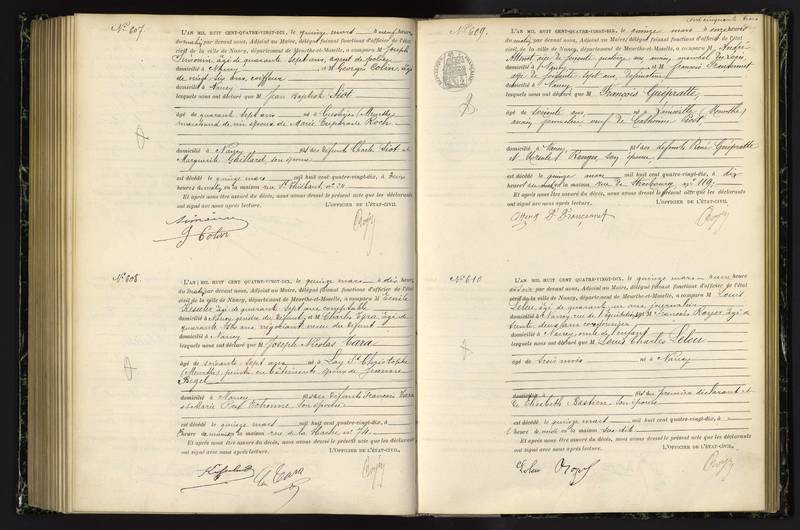 N° 607.
L'AN MIL HUIT CENT QUATRE-VINGT-DIX, le quinze mars à neuf heures
du matin, par devant nous, Adjoint au Maire, délégué faisant fonctions d'officier de l'état
civil de la ville de Nancy, département de Meurthe-et-Moselle, a comparu M Joseph
âgé de quarante sept ans, agent de police
domicilié à Nancy et M Georges Colin, âgé
de vingt six ans, coiffeur
domicilié à Nancy
lesquels nous ont déclaré que M Jean Baptiste Siot
âgé de quarante sept ans né à (Meurthe)
marchand de vin époux de Marie Euphrasie Roch
domicilié à Nancy fils des défunts Charles Siot et
Marguerite Gaillard, son épouse
est décédé le quinze mars mil huit cent quatre-vingt-dix, à deux
heures du matin en la maison rue St Thiébaut, n° 34
Et après nous être assuré du décès, nous avons dressé le présent acte que les déclarants
ont signé avec nous après lecture. L'OFFICIER DE L'ÉTAT-CIVIL
G Colin
N° 608.
L'AN MIL HUIT CENT QUATRE-VINGT-DIX, le quinze mars à dix heures
du matin par devant nous, Adjoint au Maire, délégué faisant fonctions d'officier de l'état
civil de la ville de Nancy, département de Meurthe-et-Moselle, a comparu M Emile
âgé de quarante sept ans comptable
domicilié à Nancy, gendre du défunt et M Charles Tara, âgé de
quarante ans négociant, neveu du défunt
domicilié à Nancy
lesquels nous ont déclaré que M Joseph Nicolas Tara
âgé de soixante sept ans né à Lay St Christophe
(Meurthe) peintre en bâtiments époux de Jeanne
Begel
domicilié à Nancy fils des défunts François Tara
et Marie son épouse
est décédé le quinze mars mil huit cent quatre-vingt-dix, à
heure de en la maison rue de la Hache n° 74
Et après nous être assuré du décès, nous avons dressé le présent acte que les déclarants
ont signé avec nous après lecture. L'OFFICIER DE L'ÉTAT-CIVIL,
Ch Tara
cent cinquante trois
N° 609.
L'AN MIL HUIT CENT QUATRE-VINGT-DIX, le quinze mars à onze heures
du matin, par devant nous, Adjoint au Maire, délégué faisant fonctions d'officier de l'état
civil de la ville de Nancy, département de Meurthe-et-Moselle, a comparu M André
âgé de soixante quatorze ans
domicilié à Nancy et M François Françonnet
âgé de soixante sept ans
domicilié à Nancy
lesquels nous ont déclaré que M François Guépratte
âgé de soixante ans né à Lunéville (Meurthe)
veuf de Catherine
domicilié à Nancy fils des défunts René Guépratte
et son épouse
est décédé le quinze mars mil huit cent quatre-vingt-dix, à dix
heures du matin en la maison rue de Strasbourg, n° 119
Et après nous être assuré du décès, nous avons dressé le présent acte que les déclarants
ont signé avec nous après lecture. L'OFFICIER DE L'ÉTAT-CIVIL.
Françonnet
N° 610
L'AN MIL HUIT CENT QUATRE-VINGT-DIX, le quinze mars à une heure
du soir par devant nous, Adjoint au Maire, délégué faisant fonctions d'officier de l'état
civil de la ville de Nancy, département de Meurthe-et-Moselle, a comparu M Louis
Leleu âgé de quarante un ans, journalier
domicilié à Nancy rue de l'Equitation et M François Royer âgé de
trente deux ans cordonnier
domicilié à Nancy, oncle de l'enfant
lesquels nous ont déclaré que M Louis Charles Leleu
âgé de trois mois né à Nancy
domicilié à fils du premier déclarant et
de Elisabeth Bastien, son épouse
est décédé le quinze mars mil huit cent quatre-vingt-dix, à
heure de midi en la maison sus-dite
Et après nous être assuré du décès, nous avons dressé le présent acte que les déclarants
ont signé avec nous après lecture. L'OFFICIER DE L'ÉTAT-CIVIL.
Leleu